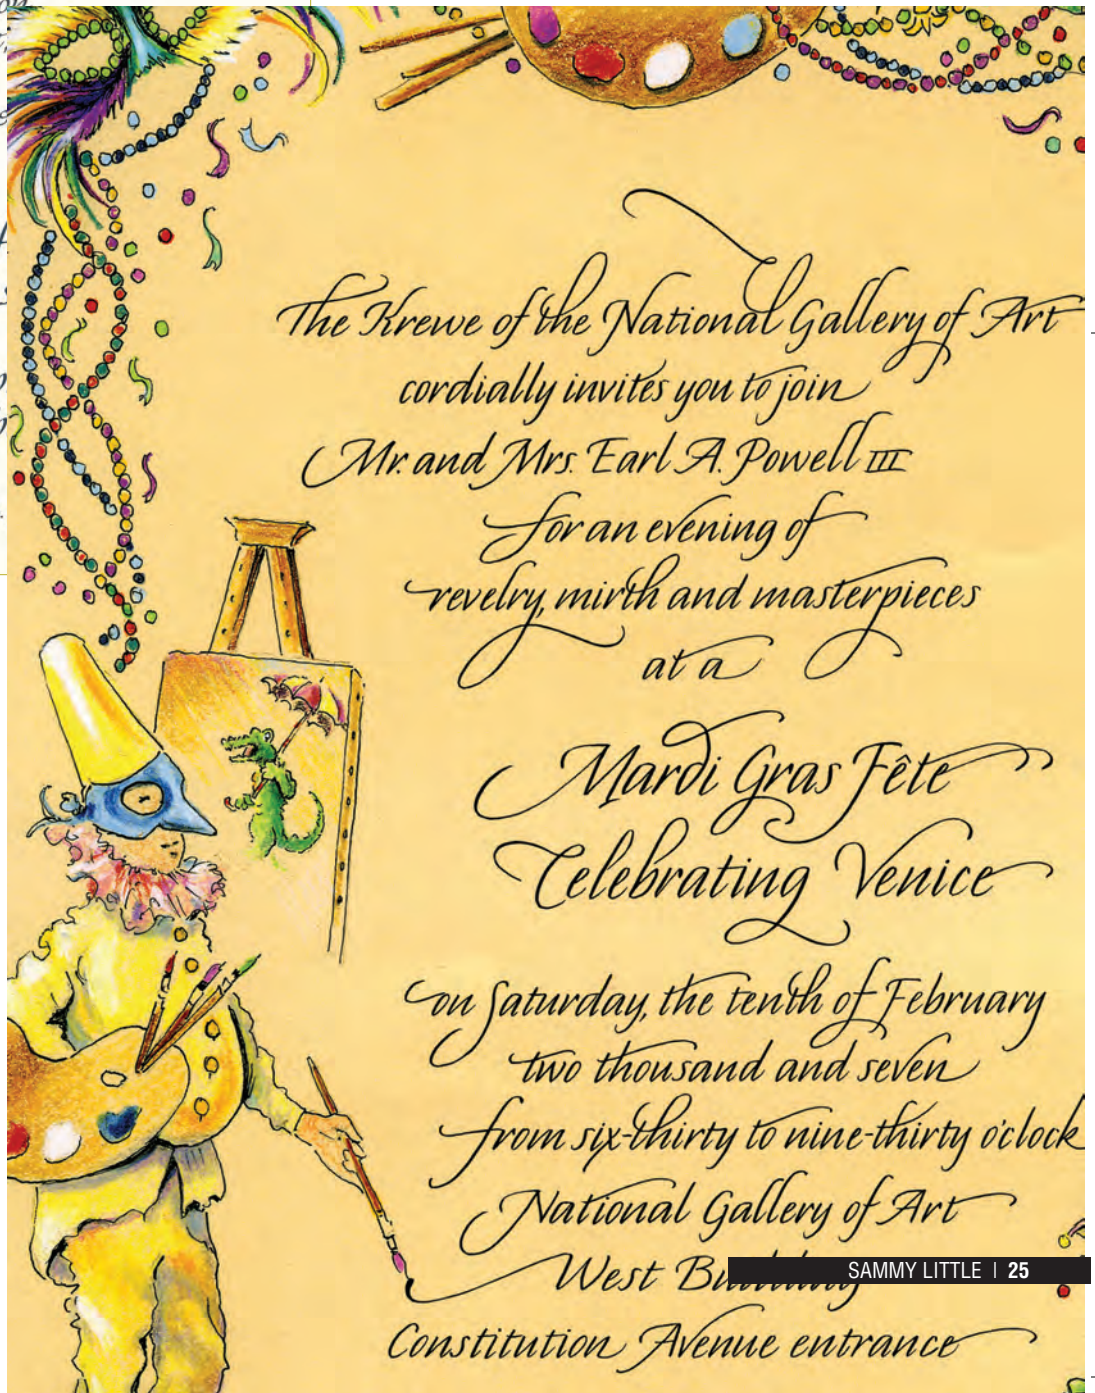 The Krewe of the National Gallery of Art
cordially invites you to join
Mr. and Mrs. Earl A. Powell III
for an evening of
revelry, mirth and masterpieces
at a
Mardi Gras Fête
Celebrating Venice
on Saturday, the tenth of February
two thousand and seven
from six-thirty to nine-thirty o'clock
National Gallery of Art
West
SAMMY LITTLE | 25
Constitution Avenue entrance